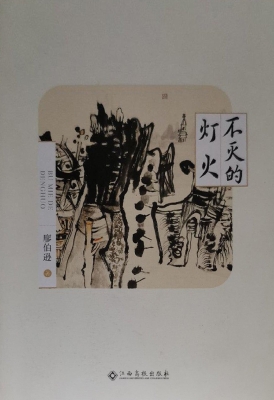 不灭的
灯火
BU MIE DE
DENGHUO
廖伯逊
著
江西高校出版社